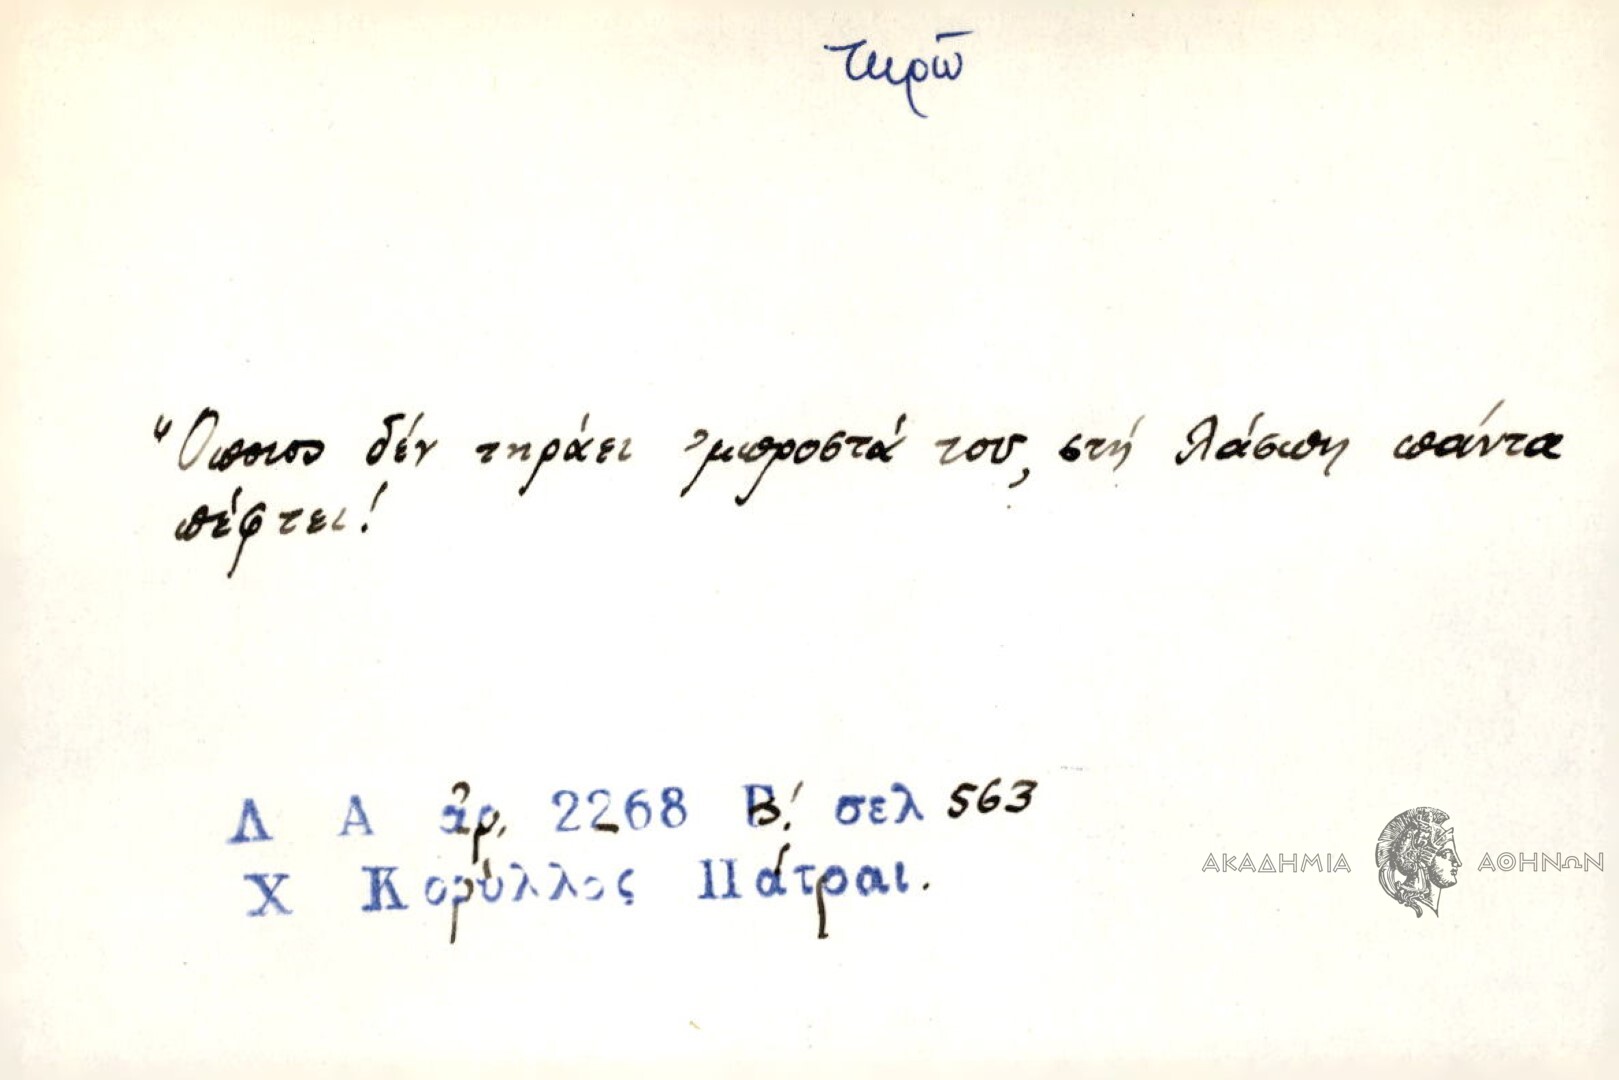 τηρῶ
Ὅποιος δέν τηράει ᾿μπροστά του, στή λάσπη πάντα
πέφτει!
Λ Α ἀρ. 2268 Β! σελ 563
Χ Κορύλλος Πάτραι.
ΑΚΑΔΗΜΙΑ ΑΘΗΝΩΝ